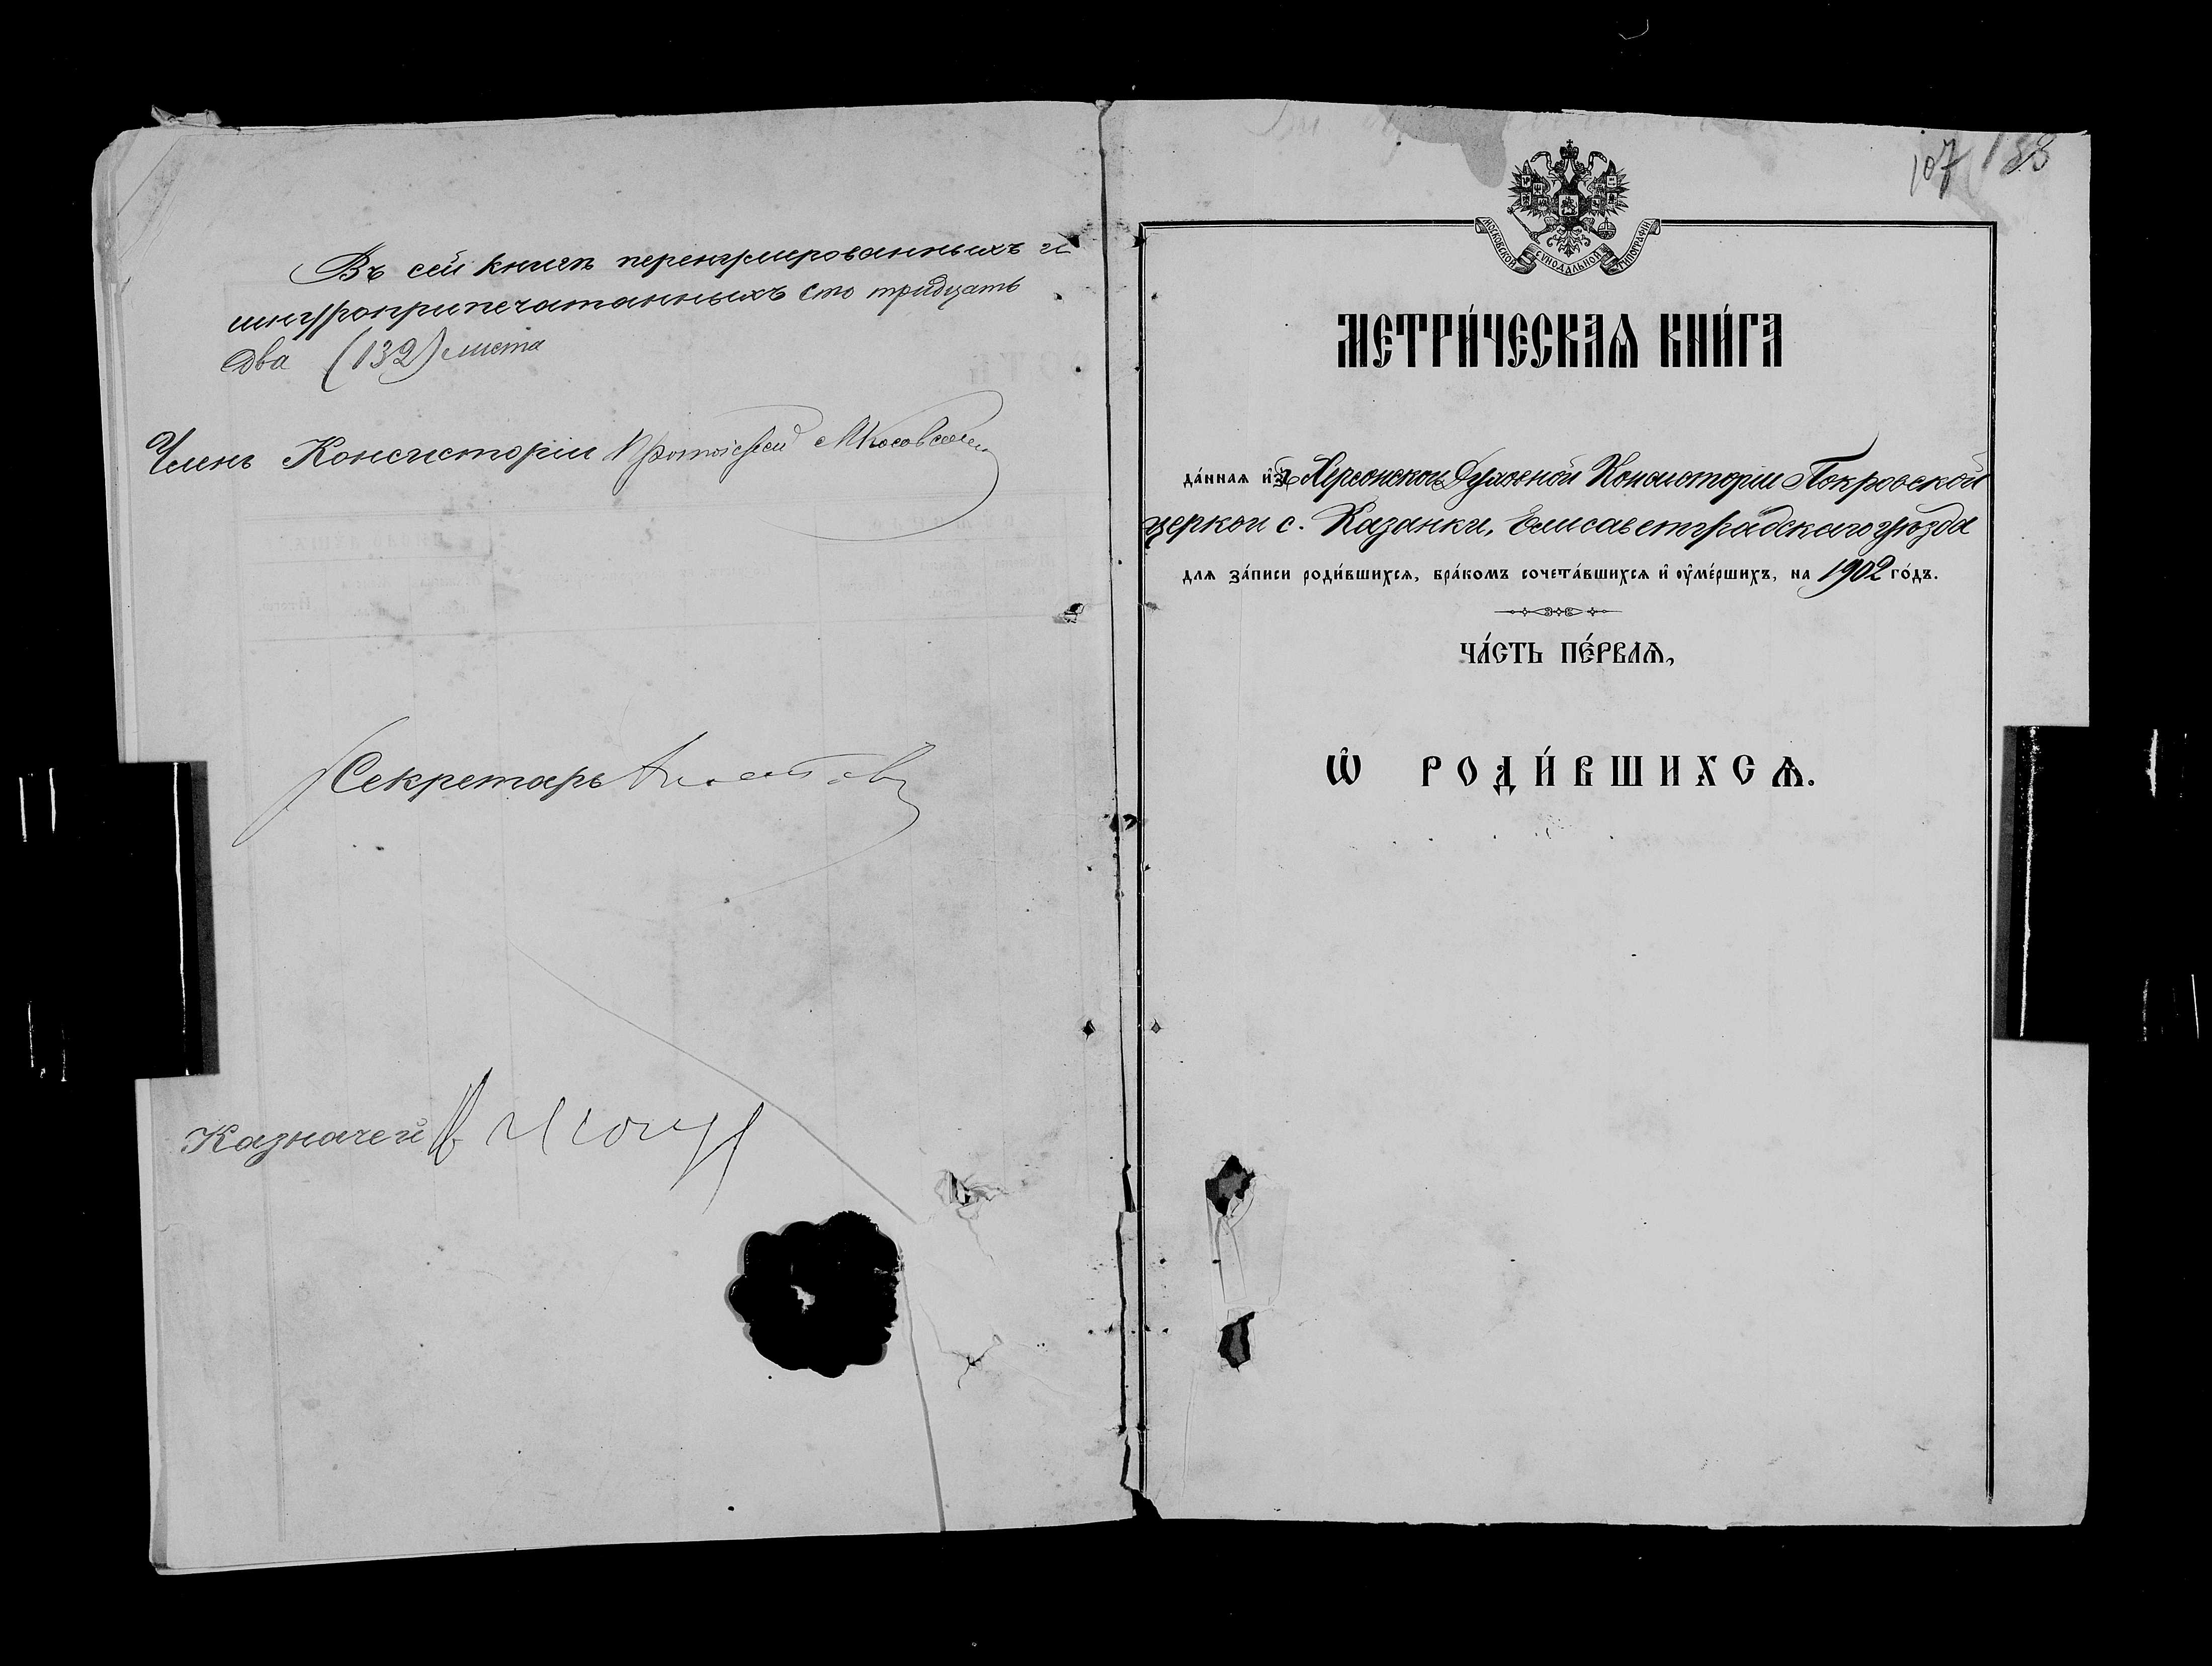 Въ сей книгѣ перенумерованныхъ и
шнуроприпечатанныхъ сто тридцать
два (132) листа
Членъ Консисторіи Протоіерей
Секретарь
Казначей
107 133
МОСКОВСКОЙ СѴНОДАЛЬНОЙ ТИПОГРАФІИ
МЕТРИ́ЧЕСКАѦ КНИ́ГА
да́нная и҆зъ Херсонской Духовной Консисторіи Покровской
церкви с. Казанки, Елисаветградскаго уѣзда
для за́писи роди́вшихся, бра́комъ сочета́вшихся и҆ ᲂу҆ме́ршихъ, на 1902 го́дъ.
ЧА́СТЬ ПЕ́РВАѦ,
Ѽ РОДИ́ВШИХСѦ.